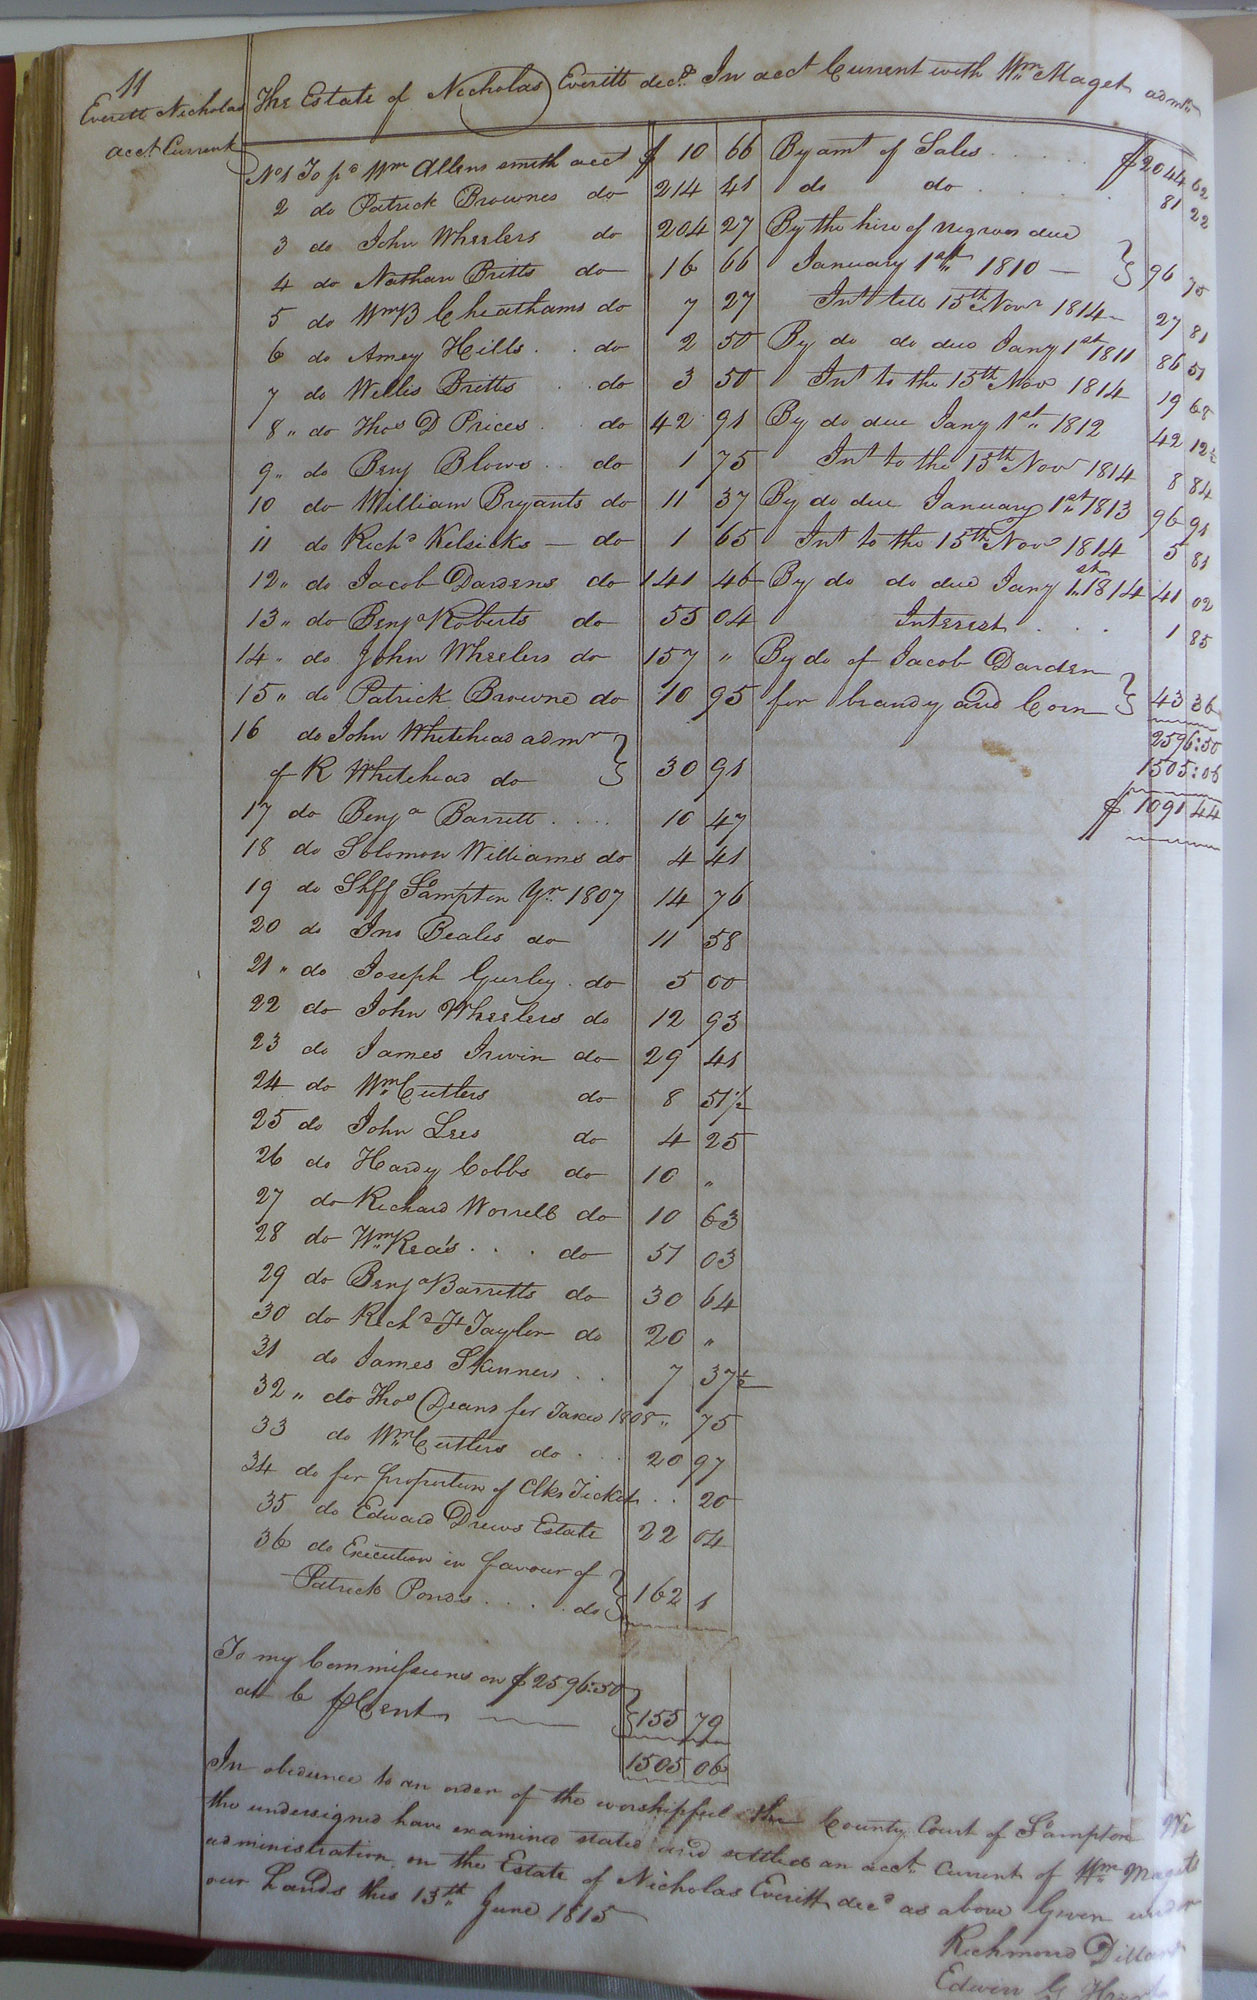 11
Everitt Nicholas
acct. Current
The Estate of Nicholas Everitt decd. In acct Current with Wm. Maget admr.
No 1 To pd Wm Allens smith acct $ 10 66 By amt of Sales . . . . . . $ 2044 62
2 do Patrick Brownes do 214 41 do do . . . . 81 22
3 do John Wheelers do 204 27 By the hire of negroes due
4 do Nathan Britts do 16 66 January 1st. 1810 — } 96 75
5 do Wm B Cheathams do 7 27 Int till 15th Novr 1814 27 81
6 do Amey Hills . . do 2 50 By do do due Jany 1st 1811 86 51
7 do Willis Britts . . do 3 50 Int to the 15th Novr 1814 19 68
8 " do Thos D Prices . . do 42 91 By do due Jany 1st " 1812 42 12½
9 " do Benj Blows . . do 1 75 Int to the 15th Novr 1814 8 84
10 do William Bryants do 11 37 By do due January 1st " 1813 96 91
11 do Richd Kelsicks — do 1 65 Int to the 15th Novr 1814 5 81
12 " do Jacob Dardens do 141 46 By do do due Jany 1st. 1814 41 02
13 " do Benja Roberts do 55 04 Interest . . . 1 85
14 " do John Wheelers do 157 " By do of Jacob Darden
15 " do Patrick Browne do 10 95 for brandy and Corn } 43 36
16 do John Whitehead admr } 2596:50
of R Whitehead do 30 91 1505:06
17 do Benja Barrett . . . . 10 47 $ 1091 44
18 do Solomon Williams do 4 41
19 do Shff S.ampton Yr. 1807 14 76
20 do Jno Beales do 11 58
21 " do Joseph Gurley . do 5 00
22 do John Wheelers do 12 93
23 do James Irwin do 29 41
24 do Wm. Cutlers do 8 51½
25 do John Lees do 4 25
26 do Hardy Cobbs do 10 "
27 do Richard Worrell do 10 63
28 do Wm. Kea's . . . do 51 03
29 do Benja Barretts do 30 64
30 do Richd H Taylor do 20 "
31 do James Skinners . . 7 37½
32 " do Thos Deans for Taxes 1808 " 75
33 do Wm. Cutlers do . . . 20 97
34 do for proportion of Clks Ticket . . 20
35 do Edward Drews Estate 22 04
36 do Execution in favour of }
Patrick Ponds . . . . do 162 1
To my Commissions on $2596:50 }
at 6 pCent — 155 79
1505 06
In obedience to an order of the worshipful the County Court of S.ampton We
the undersigned have examined stated and settled an acct. Current of Wm. Magets
administration on the Estate of Nicholas Everitt decd as above Given under
our hands this 13th. June 1815
Richmond Dillard
Edwin G